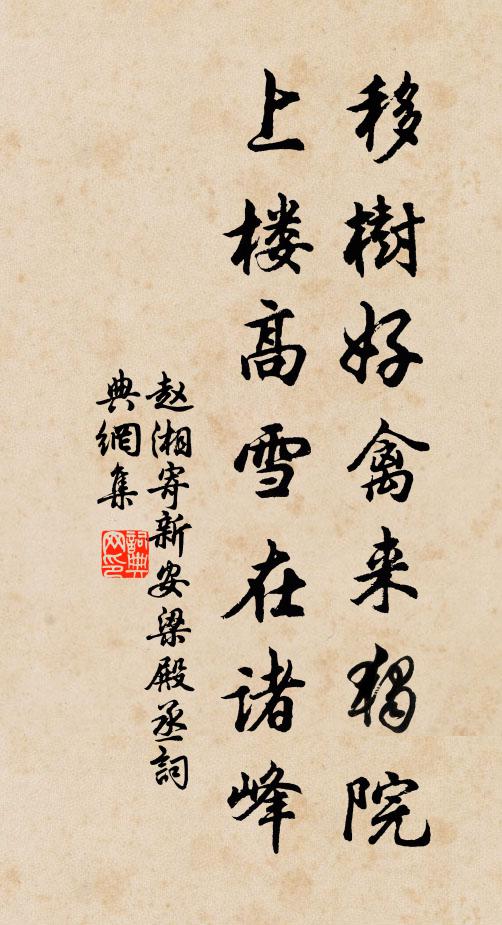 移樹好禽来独院
上楼高雪在诸峰
赵湘寄新安梁殿丞詞
典網集
詞典
网印